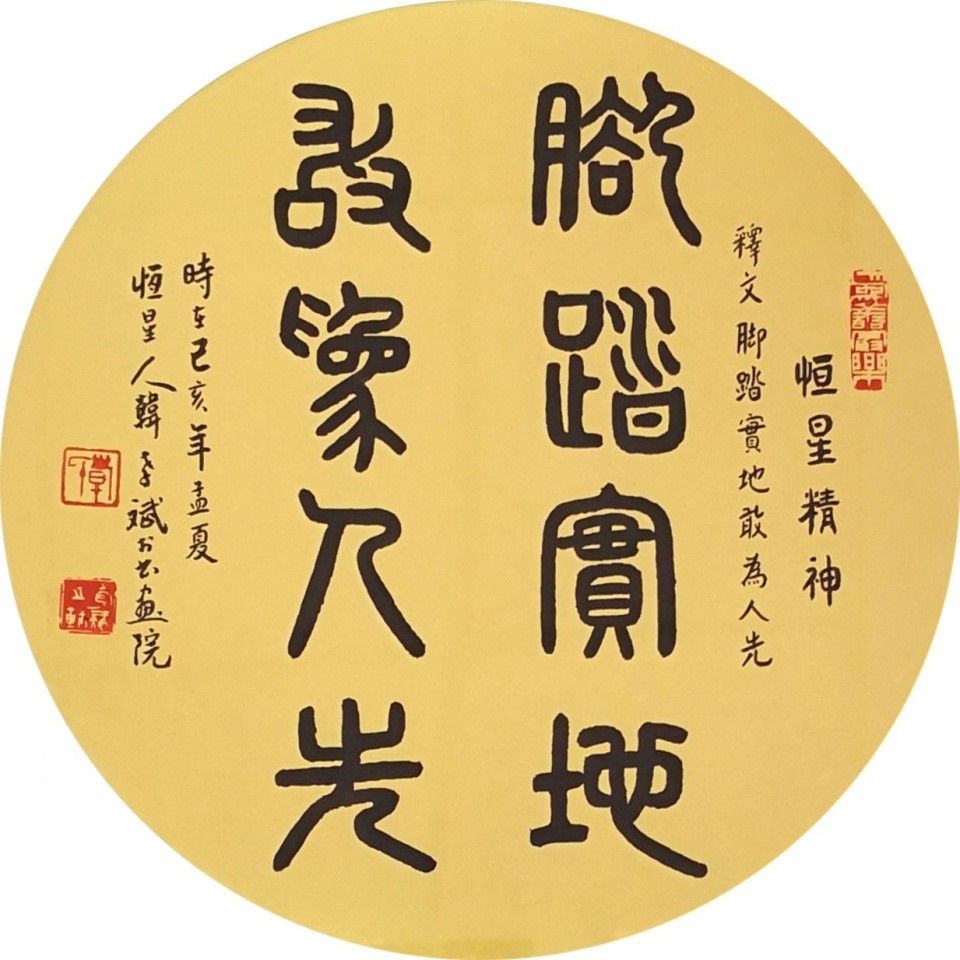 恒星精神
釋文脚踏實地敢為人先
腳踏實地
敢為人先
時在己亥年孟夏
恒星人韓孝斌於书画院